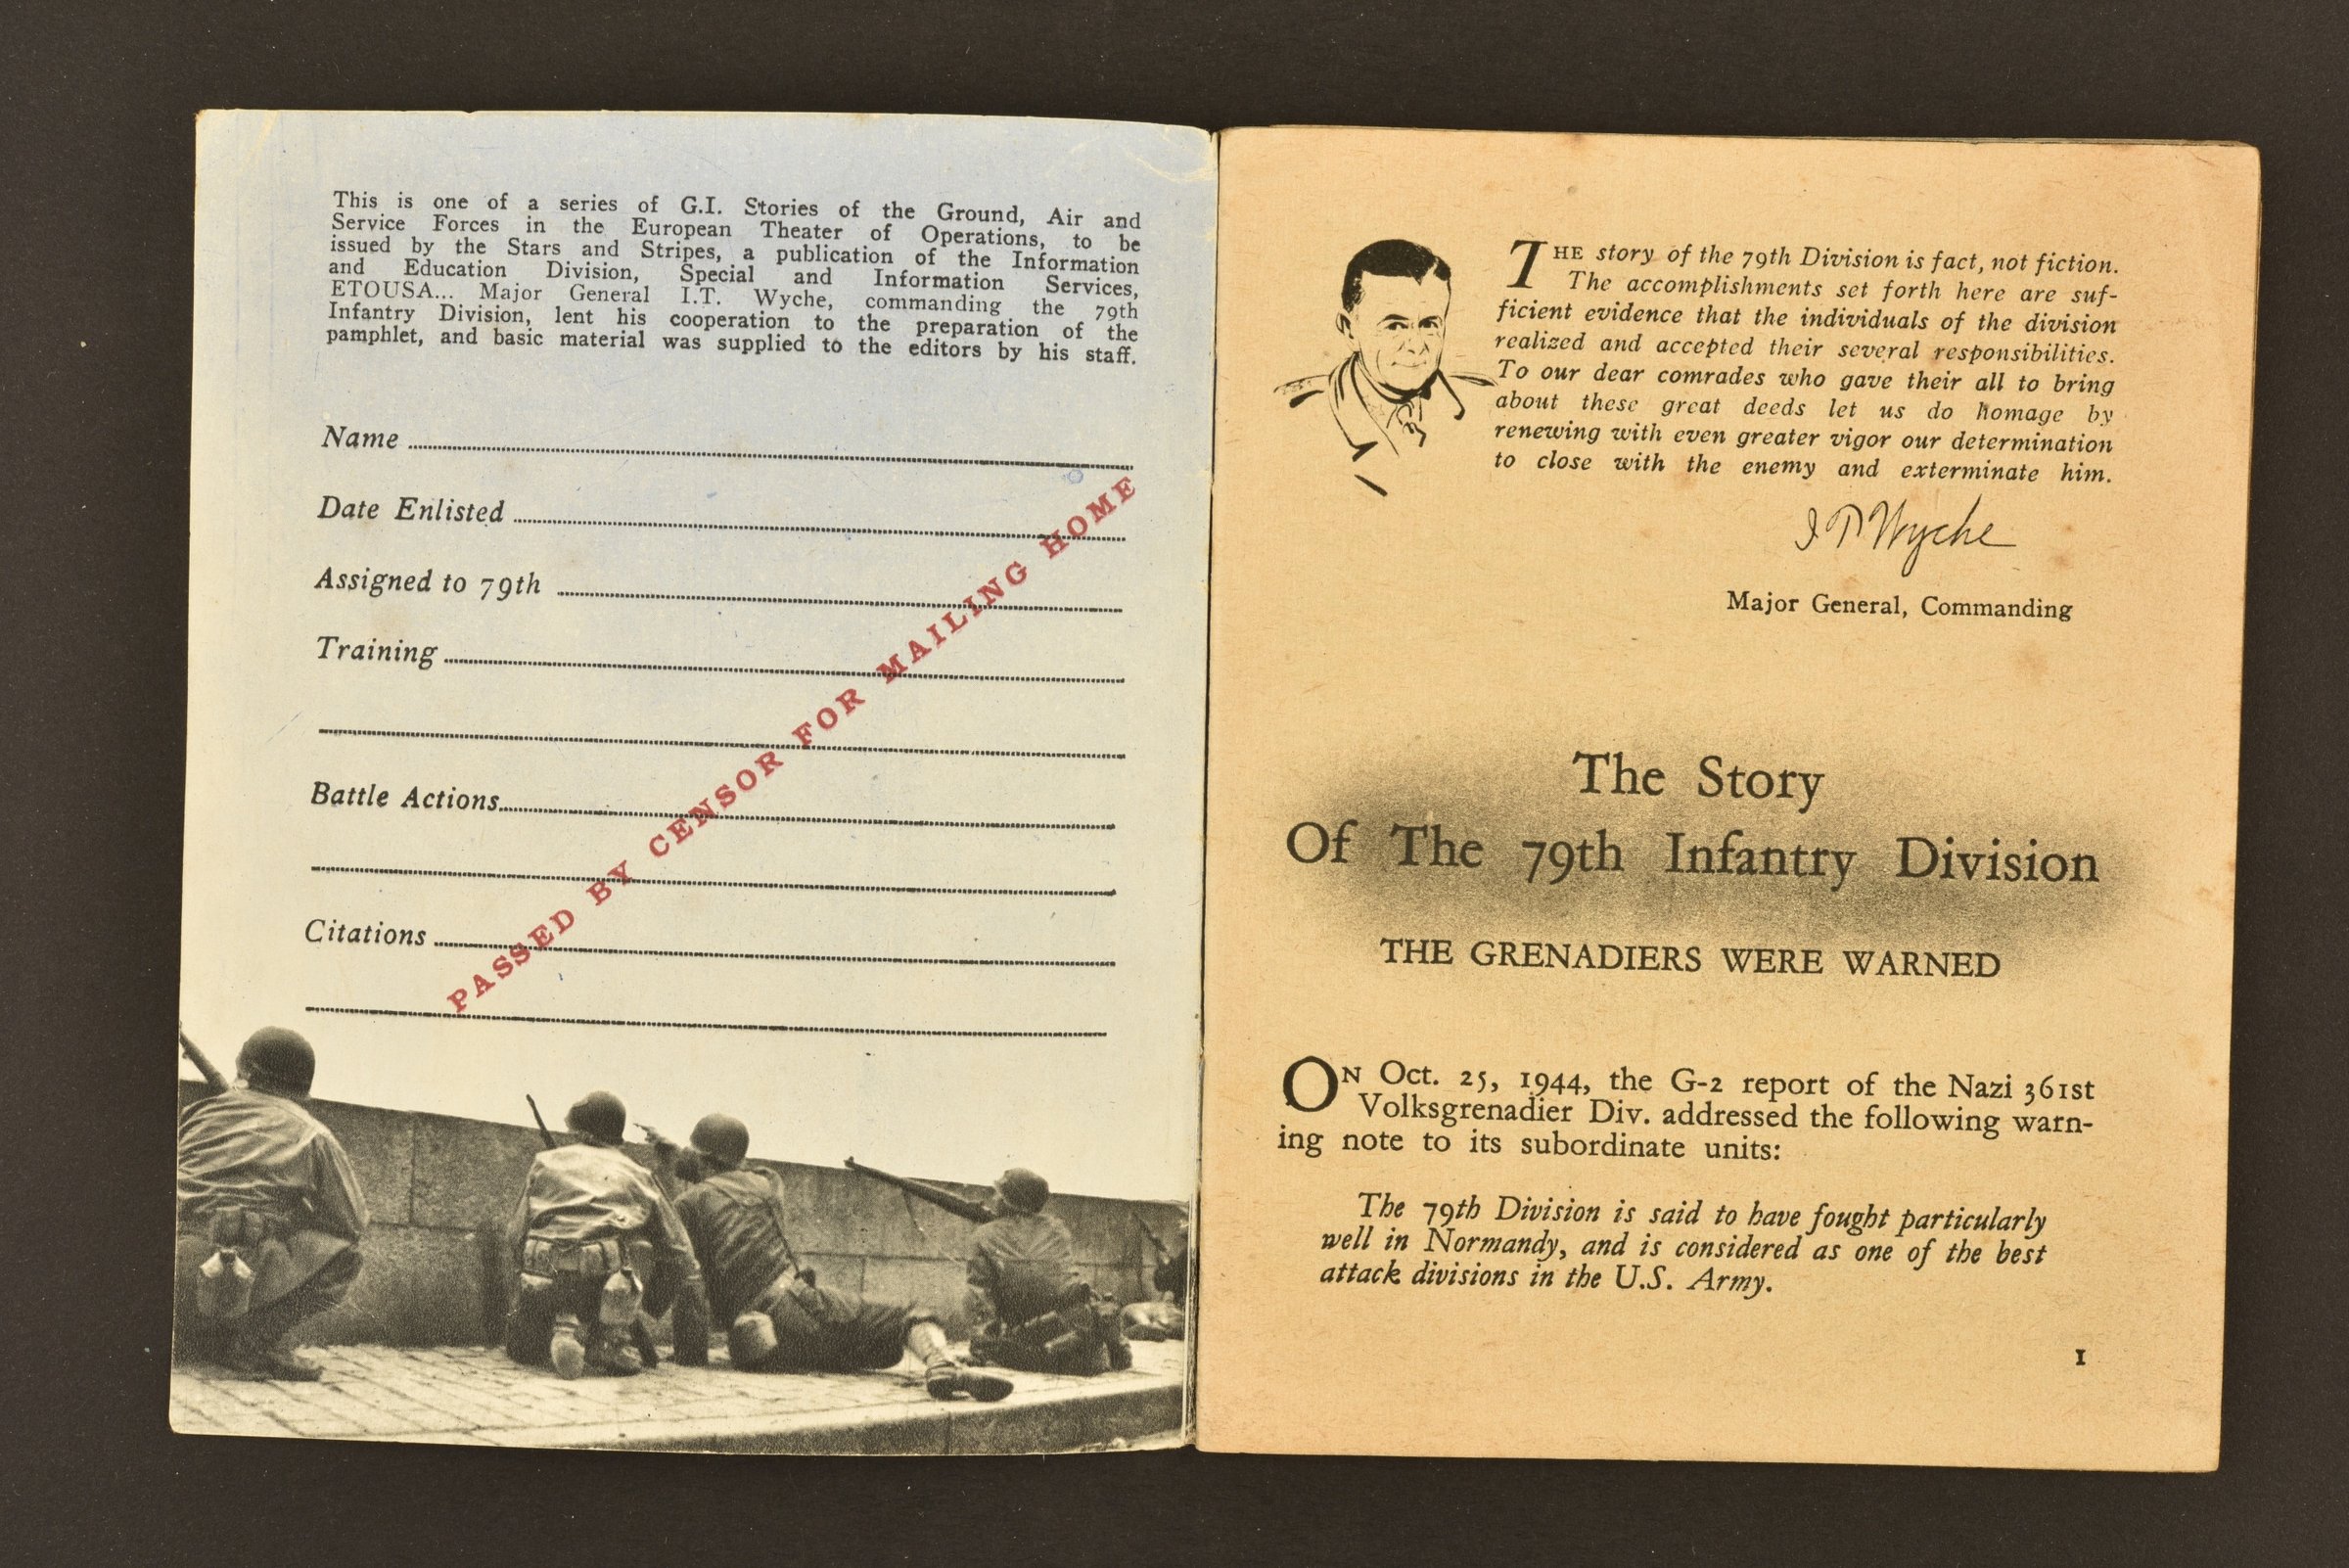 This is one of a series of G.I. Stories of the Ground, Air and
Service Forces in the European Theater of Operations, to be
issued by the Stars and Stripes, a publication of the Information
and Education Division, Special and Information Services,
ETOUSA... Major General I.T. Wyche, commanding the 79th
Infantry Division, lent his cooperation to the preparation of the
pamphlet, and basic material was supplied to the editors by his staff.
Name
Date Enlisted
Assigned to 79th
Training
Battle Actions
Citations
PASSED BY CENSOR FOR MAILING HOME
THE story of the 79th Division is fact, not fiction.
The accomplishments set forth here are suf-
ficient evidence that the individuals of the division
realized and accepted their several responsibilities.
To our dear comrades who gave their all to bring
about these great deeds let us do homage by
renewing with even greater vigor our determination
to close with the enemy and exterminate him.
I T Wyche
Major General, Commanding
The Story
Of The 79th Infantry Division
THE GRENADIERS WERE WARNED
ON Oct. 25, 1944, the G-2 report of the Nazi 361st
Volksgrenadier Div. addressed the following warn-
ing note to its subordinate units:
The 79th Division is said to have fought particularly
well in Normandy, and is considered as one of the best
attack divisions in the U.S. Army.
1